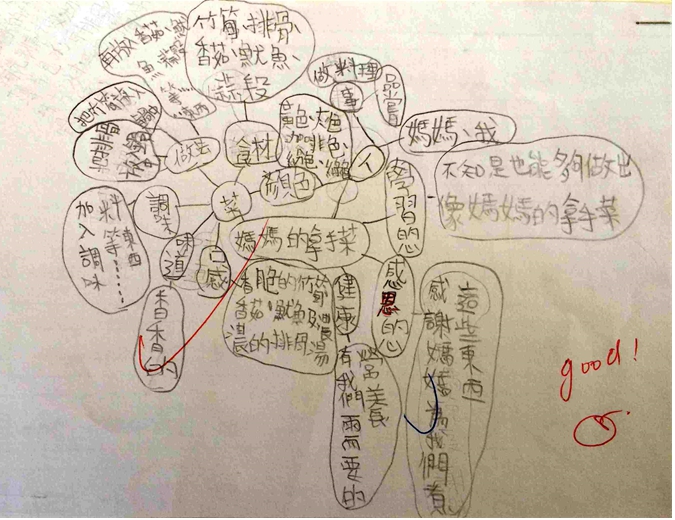 竹筍、排骨、
香菇、魷魚、
蒜段
再放香菇、
魚
等
東西
把竹筍放入
做法
食材
黃色、灰色
咖啡色
綠色
做料理
事
品嘗
人
媽媽、我
學習的心
不知是也能夠做出
像媽媽的拿手菜
顏色
菜
調味
加入調味
料等東西……
味道
香香的
口感
媽媽的拿手菜
脆脆的竹筍
香菇、魷魚
濃濃的排骨湯
健康
有我們需要的
營養
感恩的心
感謝媽媽為我們煮
這些東西
good!